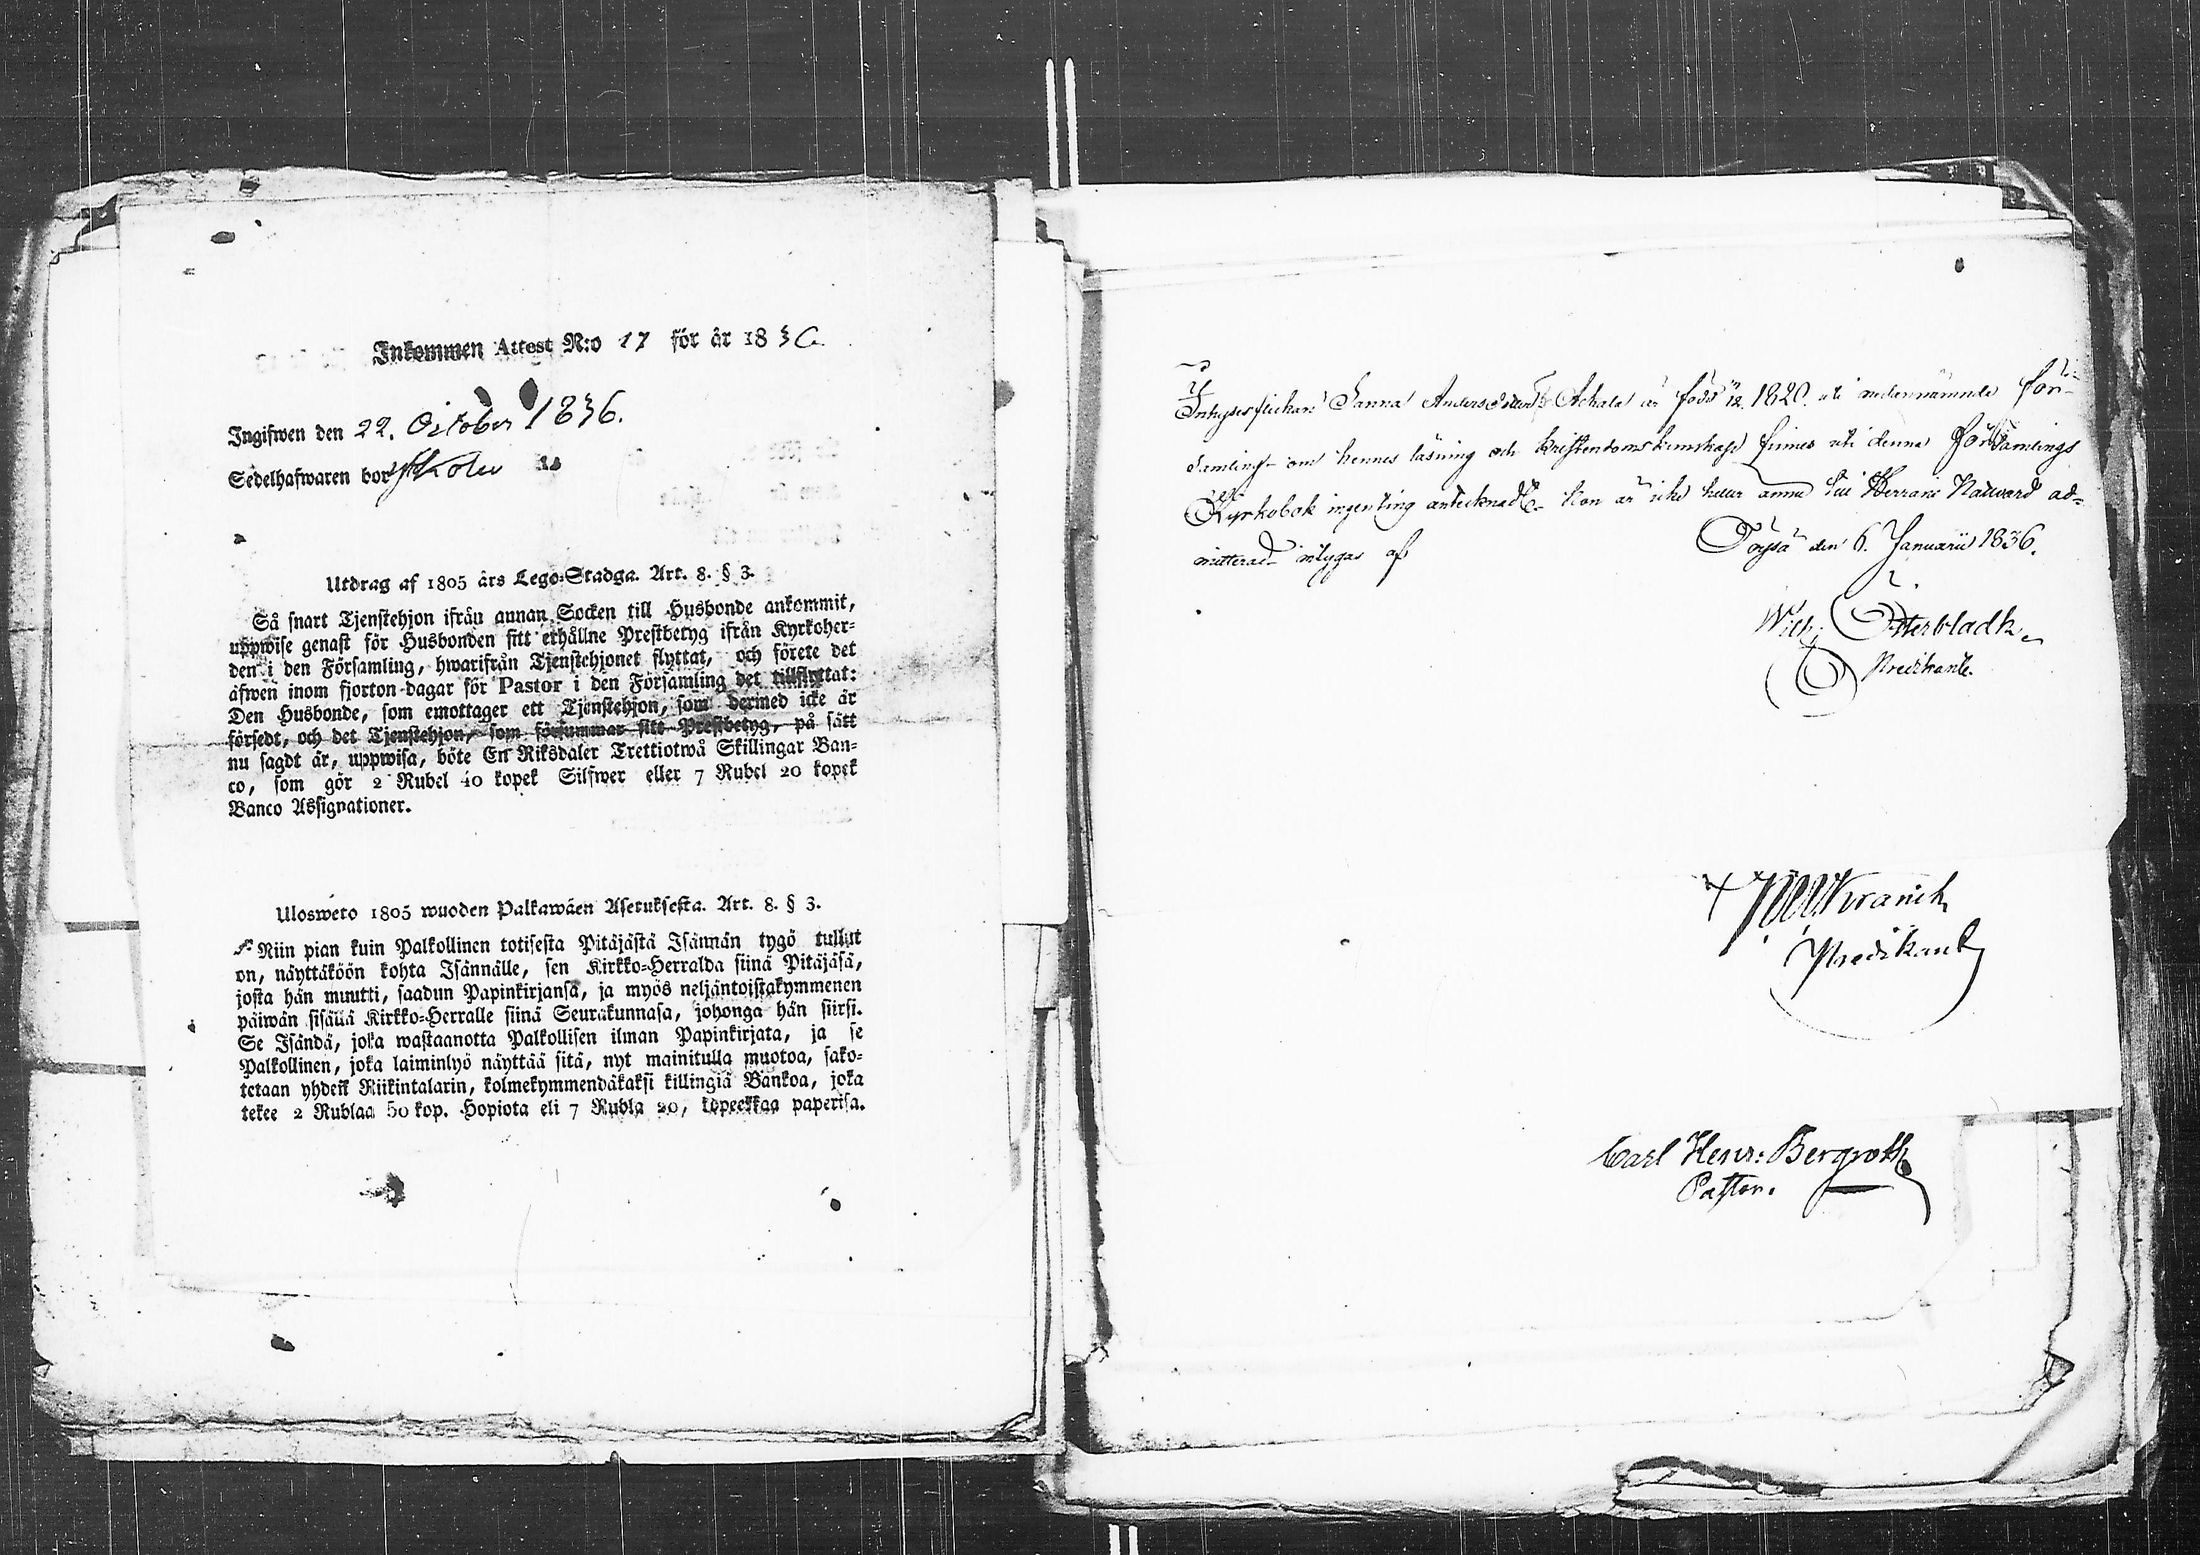 Inkommen Attest N:o 17 för år 1836
Ingifwen den 22. October 1836.
Sedelhafwaren bor
Utdrag af 1805 års Lego-Stadga. Art. 8. § 3.
Så snart Tjenstehjon ifrån annan Socken till Husbonde ankommit,
uppwise genast för Husbonden sitt erhållne Prestbetyg ifrån Kyrkoher-
den i den Församling, hwarifrån Tjenstehjonet flyttat, och förete det
äfwen inom fjorton dagar för Pastor i den Församling det tillflyttat:
Den Husbonde, som emottager ett Tjenstehjon, som dermed icke är
försedt, och det Tjenstehjon, som försummar sitt Prestbetyg, på sätt
nu sagdt är, uppwisa, böte En Riksdaler Trettiotwå Skillingar Ban-
co, som gör 2 Rubel 40 kopek Silfwer eller 7 Rubel 20 kopek
Banco Assignationer.
Ulosweto 1805 wuoden Palkawäen Asetuksesta. Art. 8. § 3.
Niin pian kuin Palkollinen totisesta Pitäjästä Isännän tygö tullut
on, näyttäköön kohta Isännälle, sen Kirkko-Herralda siinä Pitäjäsä,
josta hän muutti, saadun Papinkirjansa, ja myös neljäntoistakymmenen
päiwän sisällä Kirkko-Herralle siinä Seurakunnasa, johonga hän siirsi.
Se Isändä, joka wastaanotta Palkollisen ilman Papinkirjata, ja se
Palkollinen, joka laiminlyö näyttää sitä, nyt mainitulla muotoa, sako-
tetaan yhdeik Riikintalarin, kolmekymmendäkaksi killingiä Bankoa, joka
tekee 2 Rublaa 50 kop. Hopiota eli 7 Rubla 20, kopeekkaa paperisa.
Inhysesflickan Sanna Andersdotter Achala är född 12. 1820. uti nedannämnde för-
samling- om hennes läsning och kristendoms kunskap finnes uti denna församlings
Kyrkobok ingenting antecknadt- hon är icke heller ännu till Herrans Nattvard ad-
mitterad intygar af
Töysä den 6. Januarii 1836.
Wilh: Österbladh
Predikant.
Kranck
Predikant
Carl Henr: Bergroth
Pastor.